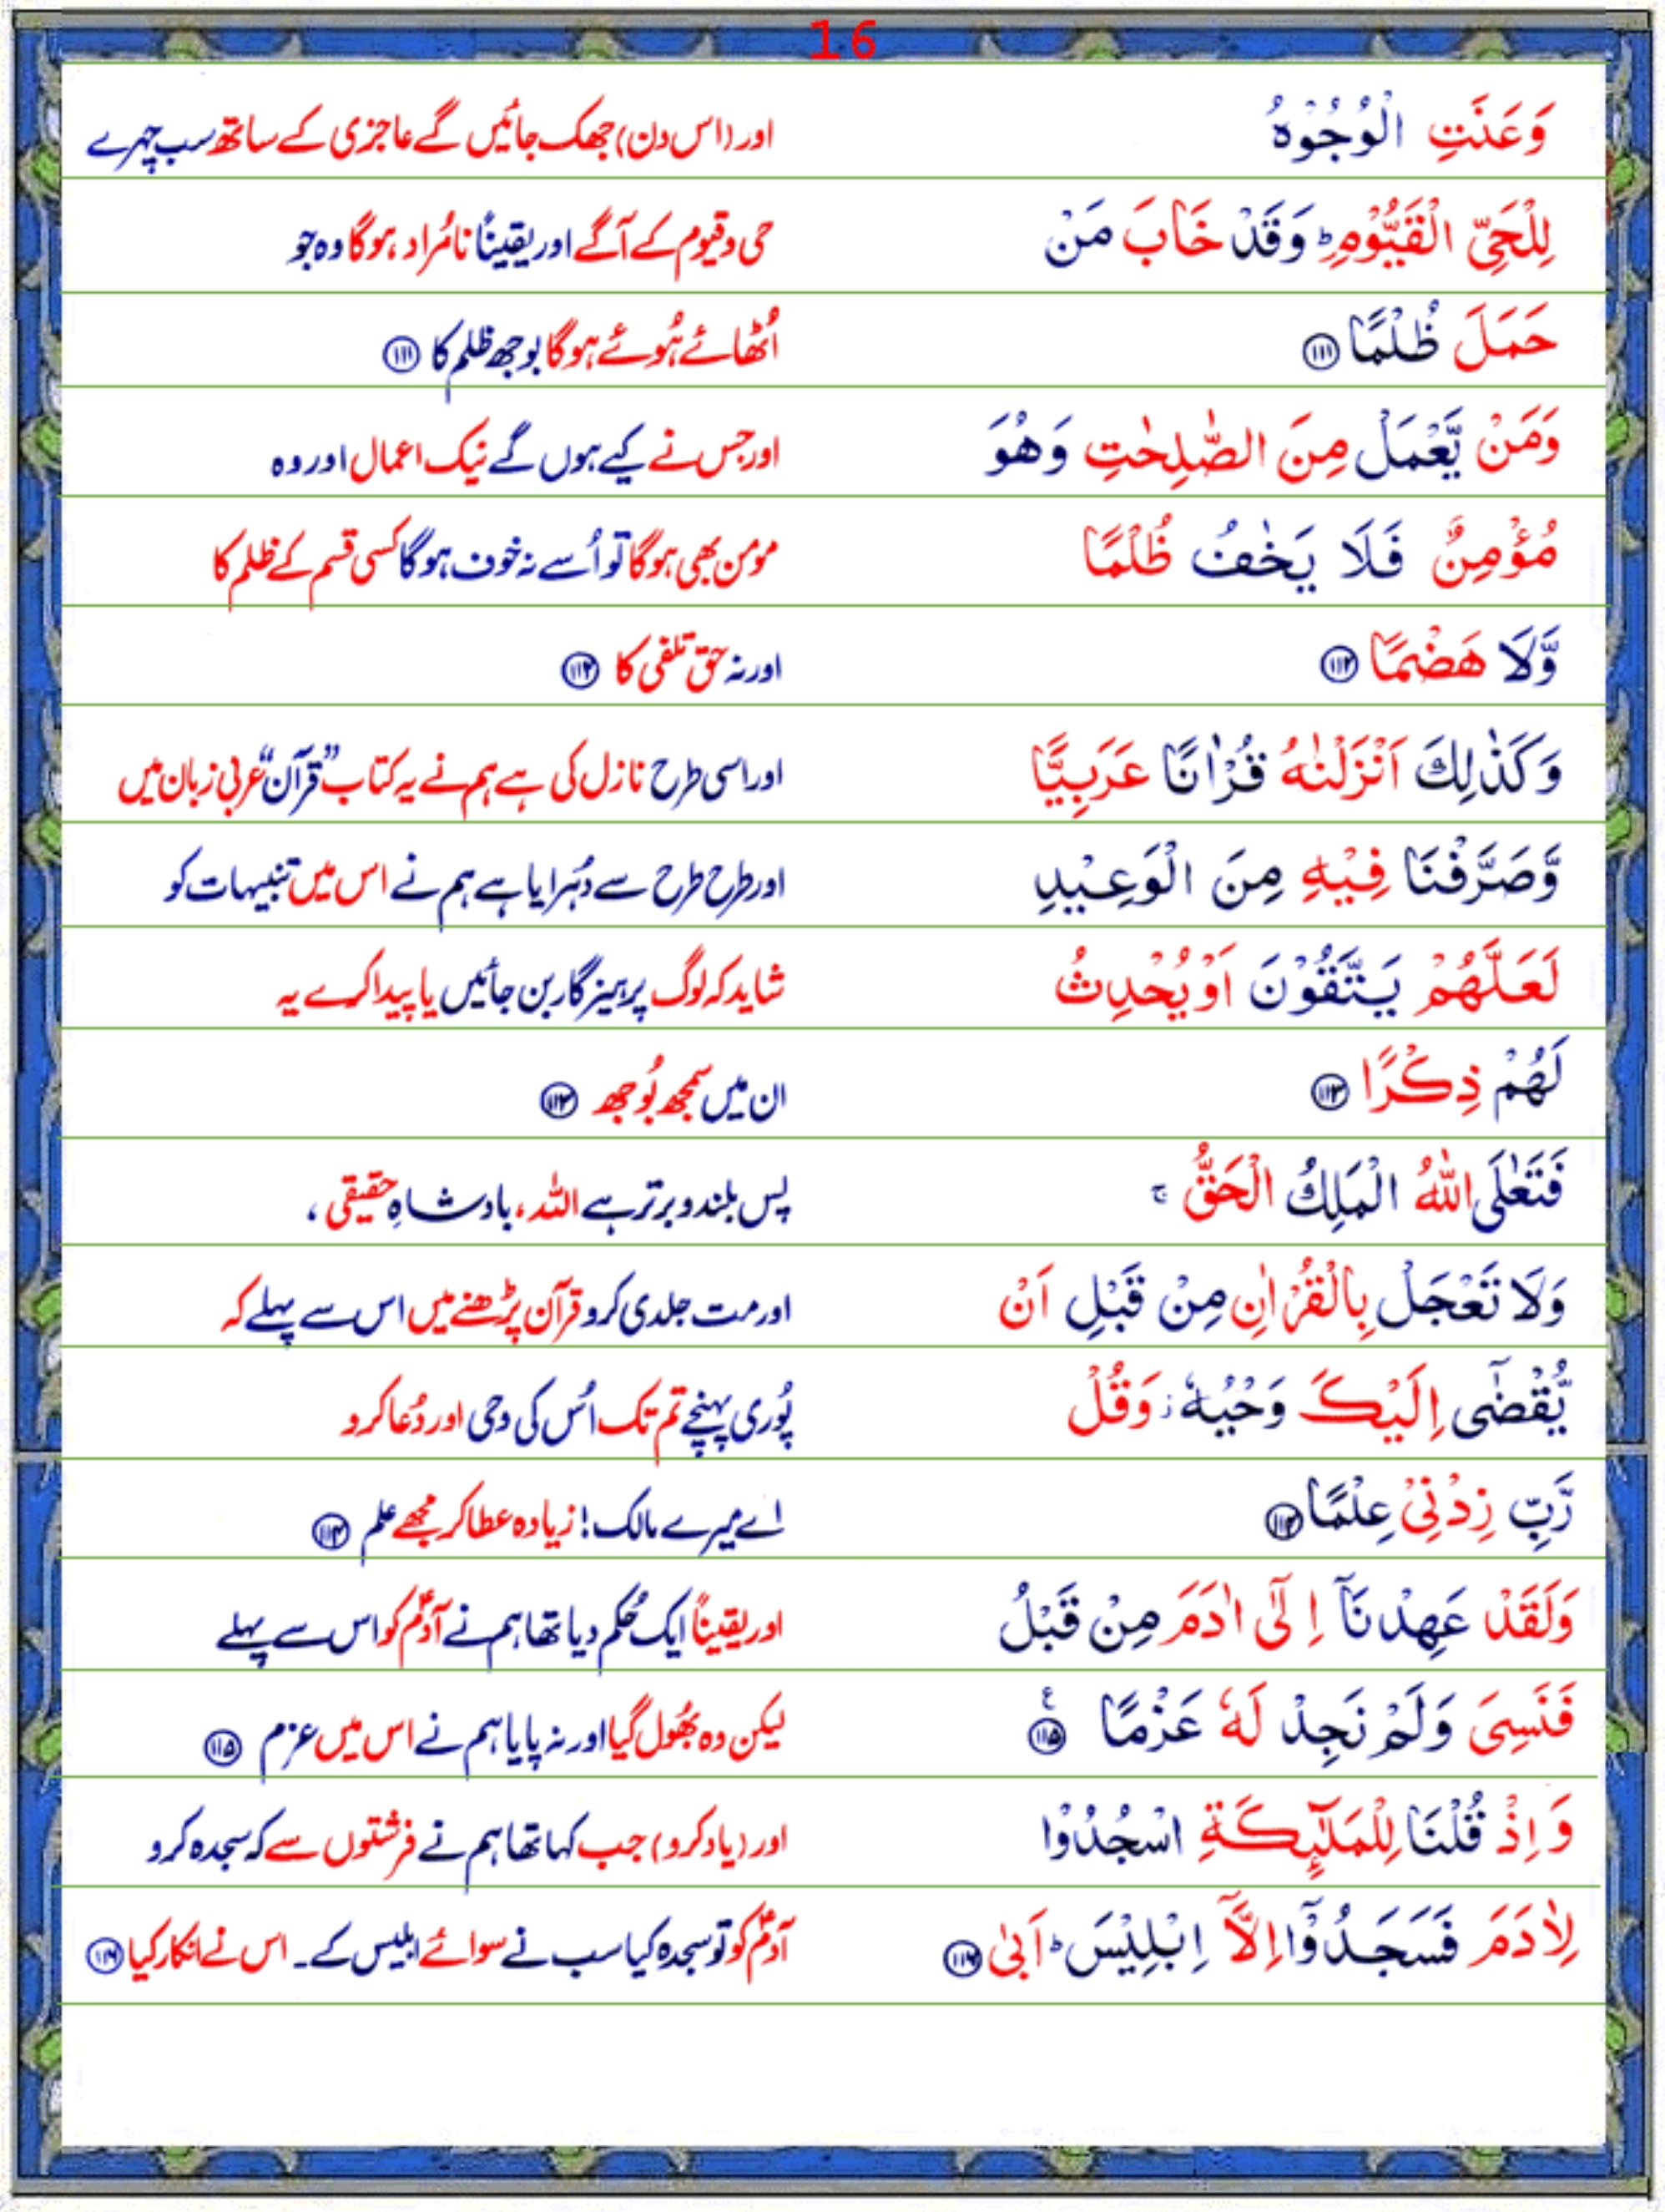 16
وَعَنَتِ الْوُجُوْهُ
اور (اس دن) جھک جائیں گے عاجزی کے ساتھ سب چہرے
لِلْحَیِّ الْقَیُّوْمِ ؕ وَقَدْ خَابَ مَنْ
حی و قیوم کے آگے اور یقیناً نامُراد ہوگا وہ جو
حَمَلَ ظُلْمًا ۝۱۱۱
اُٹھائے ہُوئے ہوگا بوجھ ظلم کا ۝۱۱۱
وَمَنْ یَّعْمَلْ مِنَ الصّٰلِحٰتِ وَهُوَ
اور جس نے کیے ہوں گے نیک اعمال اور وہ
مُؤْمِنٌ فَلَا یَخٰفُ ظُلْمًا
مومن بھی ہوگا تو اُسے نہ خوف ہوگا کسی قسم کے ظلم کا
وَّلَا هَضْمًا ۝۱۱۲
اور نہ حق تلفی کا ۝۱۱۲
وَكَذٰلِكَ اَنْزَلْنٰهُ قُرْاٰنًا عَرَبِیًّا
اور اسی طرح نازل کی ہے ہم نے یہ کتاب ”قرآن“ عربی زبان میں
وَّصَرَّفْنَا فِیْهِ مِنَ الْوَعِیْدِ
اور طرح طرح سے دُہرایا ہے ہم نے اس میں تنبیہات کو
لَعَلَّهُمْ یَتَّقُوْنَ اَوْ یُحْدِثُ
شاید کہ لوگ پرہیزگار بن جائیں یا پیدا کرے یہ
لَهُمْ ذِكْرًا ۝۱۱۳
ان میں سمجھ بُوجھ ۝۱۱۳
فَتَعٰلَی اللّٰهُ الْمَلِكُ الْحَقُّ ۚ
پس بلند و برتر ہے اللہ، بادشاہِ حقیقی،
وَلَا تَعْجَلْ بِالْقُرْاٰنِ مِنْ قَبْلِ اَنْ
اور مت جلدی کرو قرآن پڑھنے میں اس سے پہلے کہ
یُّقْضٰۤی اِلَیْكَ وَحْیُهٗ ؗ وَقُلْ
پُوری پہنچے تم تک اُس کی وحی اور دُعا کرو
رَّبِّ زِدْنِیْ عِلْمًا ۝۱۱۴
اے میرے مالک! زیادہ عطا کر مجھے علم ۝۱۱۴
وَلَقَدْ عَهِدْنَاۤ اِلٰۤی اٰدَمَ مِنْ قَبْلُ
اور یقیناً ایک حُکم دیا تھا ہم نے آدمؑ کو اس سے پہلے
فَنَسِیَ وَلَمْ نَجِدْ لَهٗ عَزْمًا ۝۱۱۵ ع
لیکن وہ بھُول گیا اور نہ پایا ہم نے اس میں عزم ۝۱۱۵
وَاِذْ قُلْنَا لِلْمَلٰٓىِٕكَةِ اسْجُدُوْا
اور (یاد کرو) جب کہا تھا ہم نے فرشتوں سے کہ سجدہ کرو
لِاٰدَمَ فَسَجَدُوْۤا اِلَّاۤ اِبْلِیْسَ ؕ اَبٰی ۝۱۱۶
آدمؑ کو تو سجدہ کیا سب نے سوائے ابلیس کے۔ اس نے انکار کیا ۝۱۱۶